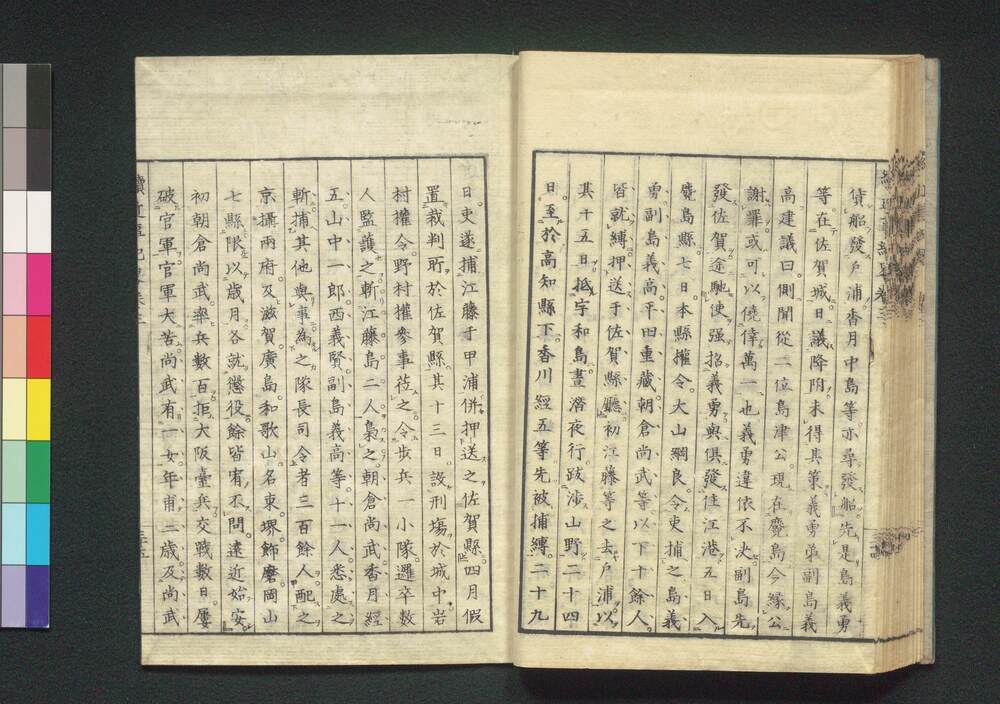 貸船發戶浦香月中島等亦尋發船先是島義勇
等在佐賀城日議降附未得其策義勇弟副島義
高建議曰側聞從二位島津公現在麑島今緣公
謝罪或可以僥倖萬一也義勇違依不决副島先
發佐賀途馳使强招義勇與俱發住江港五日入
麑島縣七日本縣權令大山綱良令東捕之島義
勇副島義高平田重藏朝倉尚武等以下十餘人
皆就縛押送于佐賀縣廳初江藤等之去戶浦以
其十五日抵宇和島晝潛夜行跋涉山野二十四
日至於高知縣下香川經五等先被捕縛二十九
日東遂捕江藤于甲浦併押送之佐賀縣四月假
置裁判所於佐賀縣其十三日設刑場於城中岩
村權令野村權參事莅之令步兵一小隊邏卒數
人監護之斬江藤島二人梟之朝倉尚武香月經
五山中一郎西義賢副島義高等十一人悉處之
斬捕其他與事為之隊長司令者三百餘人配之
京攝兩府及滋賀廣島和歌山名東堺飾磨岡山
七縣限以歲月各就懲役餘皆宥不問遠近始安
初朝倉尚武率兵數百拒大阪臺兵交戰數日屢
破官軍官軍大苦尚武有一女年甫二歲及尚武